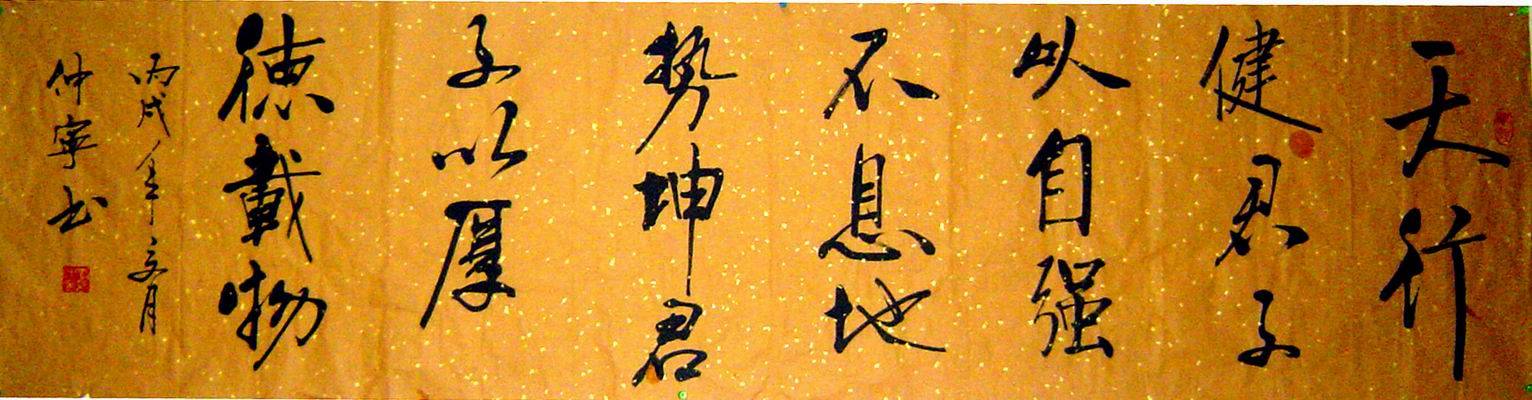 天行
健君子
以自强
不息地
势坤君
子以厚
德载物
丙戌年文月
仲寧书